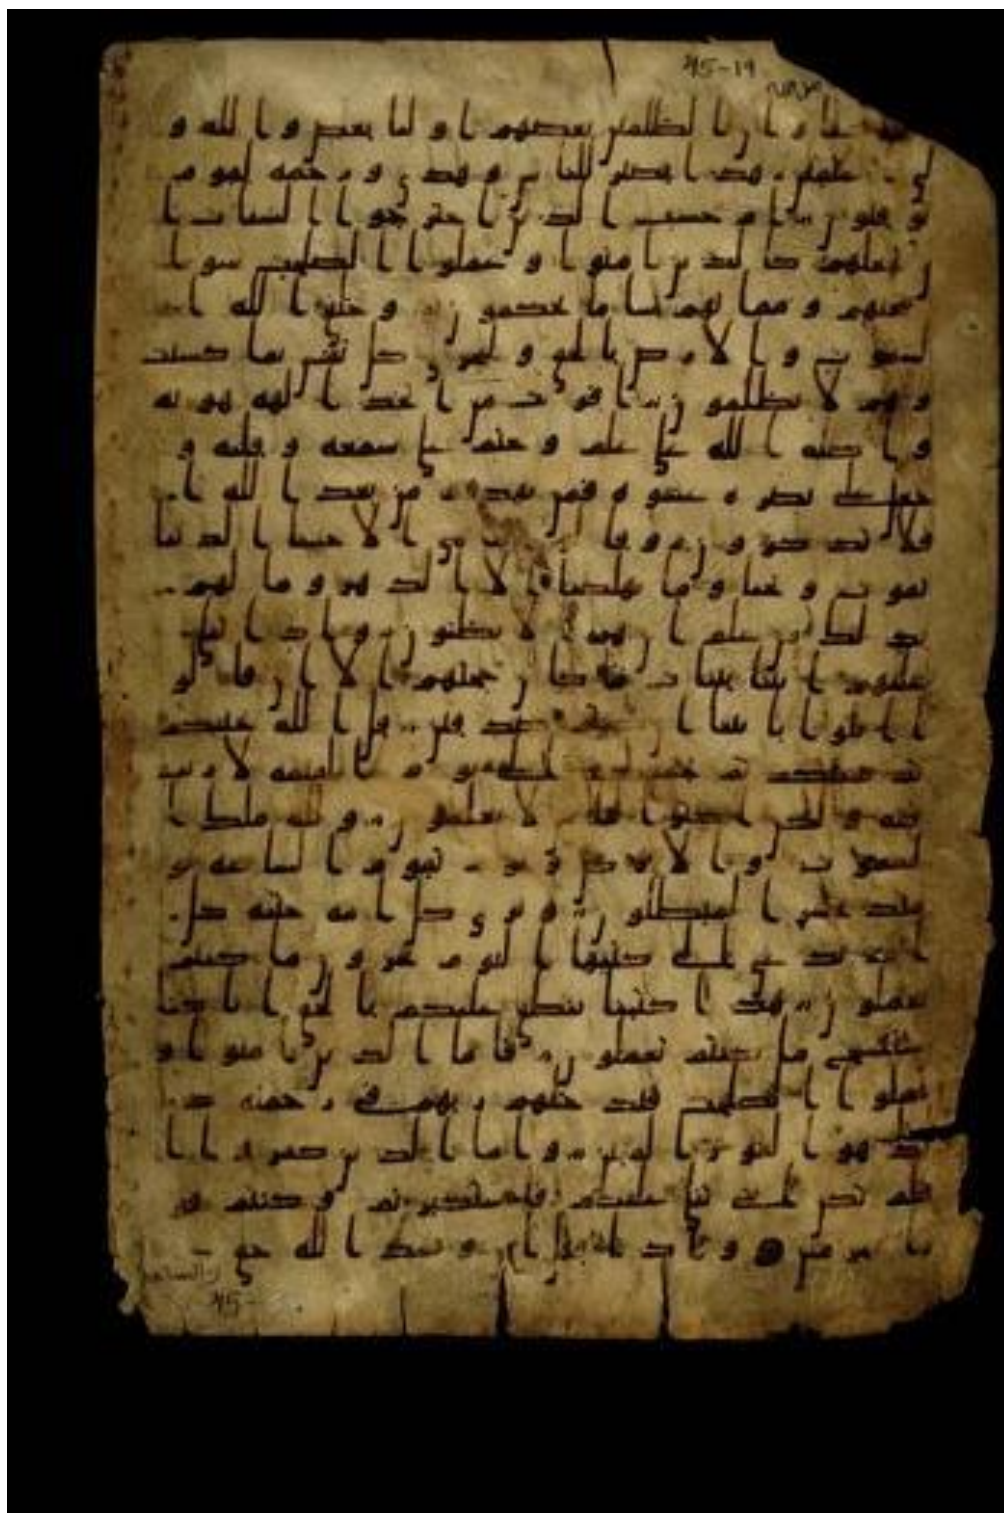 45-19
شيا و ا ن ا لظلمين بعضهم ا و ليا بعض و ا لله و
لي ا لمتقين هذ ا بصير للنا س و هد ى و ر حمه لقو م
يو قنو ن ا م حسب ا لذ ين ا جتر حو ا ا لسيا ت ا
ن نجعلهم كا لذ ين ا منو ا و عملو ا ا لصلحت سو ا
محيهم و مما تهم سا ما يحكمو ن و خلق ا لله ا
لسمو ت و ا لا ر ض با لحق و لتجز ى كل نفس بما كسبت
و هم لا يظلمو ن ا فر يت من ا تخذ ا لهه هو يه
و ا ضله ا لله على علم و ختم على سمعه و قلبه و
جعل على بصر ه غشو ه فمن يهد يه من بعد ا لله ا
فلا تذ كر و ن و قا لو ا ما هي ا لا حيا تنا ا لد نيا
نمو ت و نحيا و ما يهلكنا ا لا ا لد هر و ما لهم
بذ لك من علم ا ن هم ا لا يظنو ن و ا ذ ا تتلى
عليهم ا يتنا بينا ت ما كا ن حجتهم ا لا ا ن قا لو
ا ا يتو ا با با ينا ا ن كنتم صد قين قل ا لله يحييكم
ثم يميتكم ثم يجمعكم ا لى يو م ا لقيمه لا ر يب
فيه و لكن ا كثر ا لنا س لا يعلمو ن و لله ملك ا
لسمو ت و ا لا ر ض و يو م تقو م ا لسا عه يو
ميذ يخسر ا لمبطلو ن و تر ى كل ا مه جثيه كل
ا مه تد عى ا لى كتبها ا ليو م تجز و ن ما كنتم
تعملو ن هذ ا كتبنا ينطق عليكم با لحق ا نا كنا
نستنسخ ما كنتم تعملو ن فا ما ا لذ ين ا منو ا و
عملو ا ا لصلحت فيد خلهم ر بهم في ر حمته ذ
لك هو ا لفو ز ا لمبين و ا ما ا لذ ين كفر و ا ا
فلم تكن ا يتي تتلى عليكم فا ستكبر تم و كنتم قو
ما مجر مين و ا ذ ا قيل ا ن و عد ا لله حق
والساعة